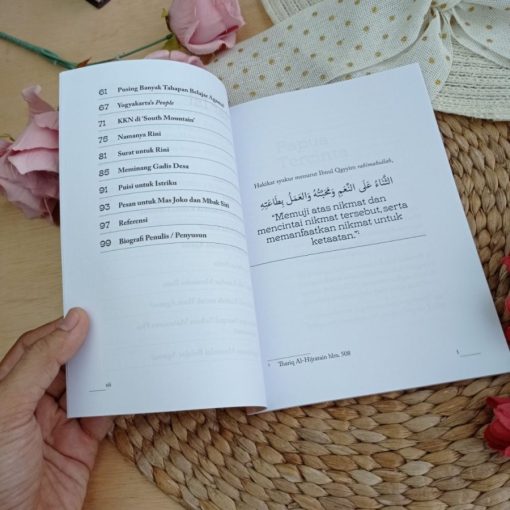 61 Pusing Banyak Tahapan Belajar Agama?
67 Yogyakarta's People
71 KKN di 'South Mountain'
75 Namanya Rini
81 Surat untuk Rini
85 Meminang Gadis Desa
91 Puisi untuk Istriku
93 Pesan untuk Mas Joko dan Mbak Siti
97 Referensi
99 Biografi Penulis / Penyusun
Hakikat syukur menurut Ibnul Qayyim rahimahullah,
الثَّنَاءُ عَلَى النِّعَمِ وَمَحَبَّتُهُ وَالعَمَلُ بِطَاعَتِهِ
"Memuji atas nikmat dan
mencintai nikmat tersebut, serta
memanfaatkan nikmat untuk
ketaatan."¹
1 Thariq Al-Hijratain hlm. 508
1